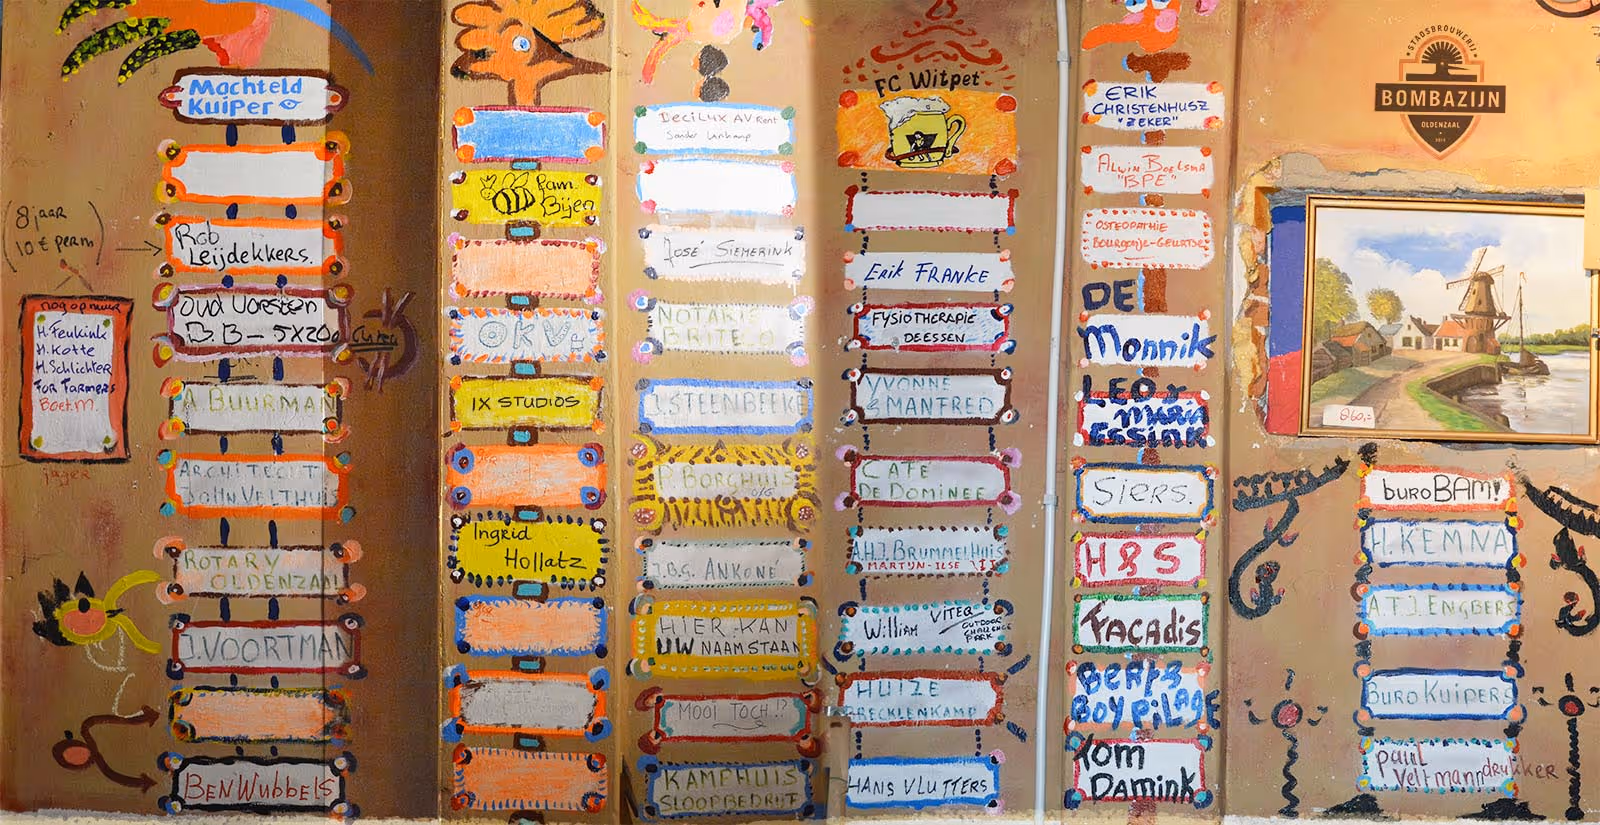 Machteld
Kuiper
8 jaar
10 € per m
Rob
Leijdekkers.
nog op muur
H. Feukink
H. Kotte
H. Schlichter
For Farmers
Boet M.
jager
oud Vorsten
B.B - 5x20
A. BUURMAN
ARCHITECHT
JOHN VELTHUIS
ROTARY
OLDENZAAL
J. VOORTMAN
BEN Wubbels
Fam.
Bijen
OKV
IX STUDIOS
Ingrid
Hollatz
DeciLux AV. Rent
JOSÉ SIEMERINK
NOTARIS
BRITECO
J. STEENBEEKE
P. BORGHUIS
J.B.G. ANKONÉ
HIER KAN
UW NAAM STAAN
MOOI TOCH!?
KAMPHUIS
SLOOPBEDRIJF
FC Witpet
Erik FRANKE
FYSIOTHERAPIE
DEESSEN
YVONNE
& MANFRED
CAFÉ
DE DOMINEE
A.H.J. BRUMMELHUIS
MARTIJN-ILSE VII
William VITEQ
OUTDOOR
CHALLENGE
PARK
HUIZE
BRECKLENKAMP
HANS VLUTTERS
ERIK
CHRISTENHUSZ
"ZEKER"
ALWIN BOELSMA
"BPE"
OSTEOPATHIE
BOURGONJE-GEWATDE
DE
Monnik
LEO &
MARIA
ESSINK
SIERS.
H & S
FACADIS
BERT &
BOY PILAGE
TOM
DAMINK
STADSBROUWERIJ
BOMBAZIJN
OLDENZAAL
860,=
buro BAM!
H. KEMNA
A.T.J. ENGBERS
BURO KUIPERS
paul
Veltmann drukker